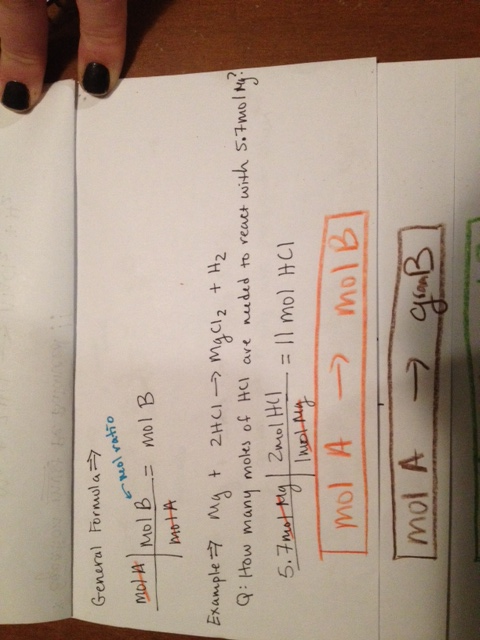 General Formula ⇒
mol A | mol B = mol B
mol A
← mol ratio
Example ⇒ Mg + 2HCl → MgCl2 + H2
Q: How many moles of HCl are needed to react with 5.7mol Mg?
5.7mol Mg | 2mol HCl = 11 mol HCl
1mol Mg
mol A → mol B
mol A → gram B